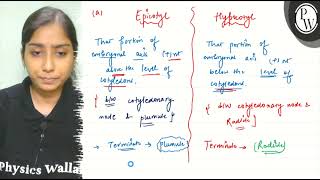 (a) Epicotyl
Hypocotyl
PW
That portion of
embryonal axis
above the level of
cotyledons.
{ b/w cotyledonary
node & plumule }
→ Terminate → Plumule
That portion of
embryonal axis
below the level of
cotyledons.
{ b/w cotyledonary node &
Radicle }
Terminate → (Radicle)
Physics Walla